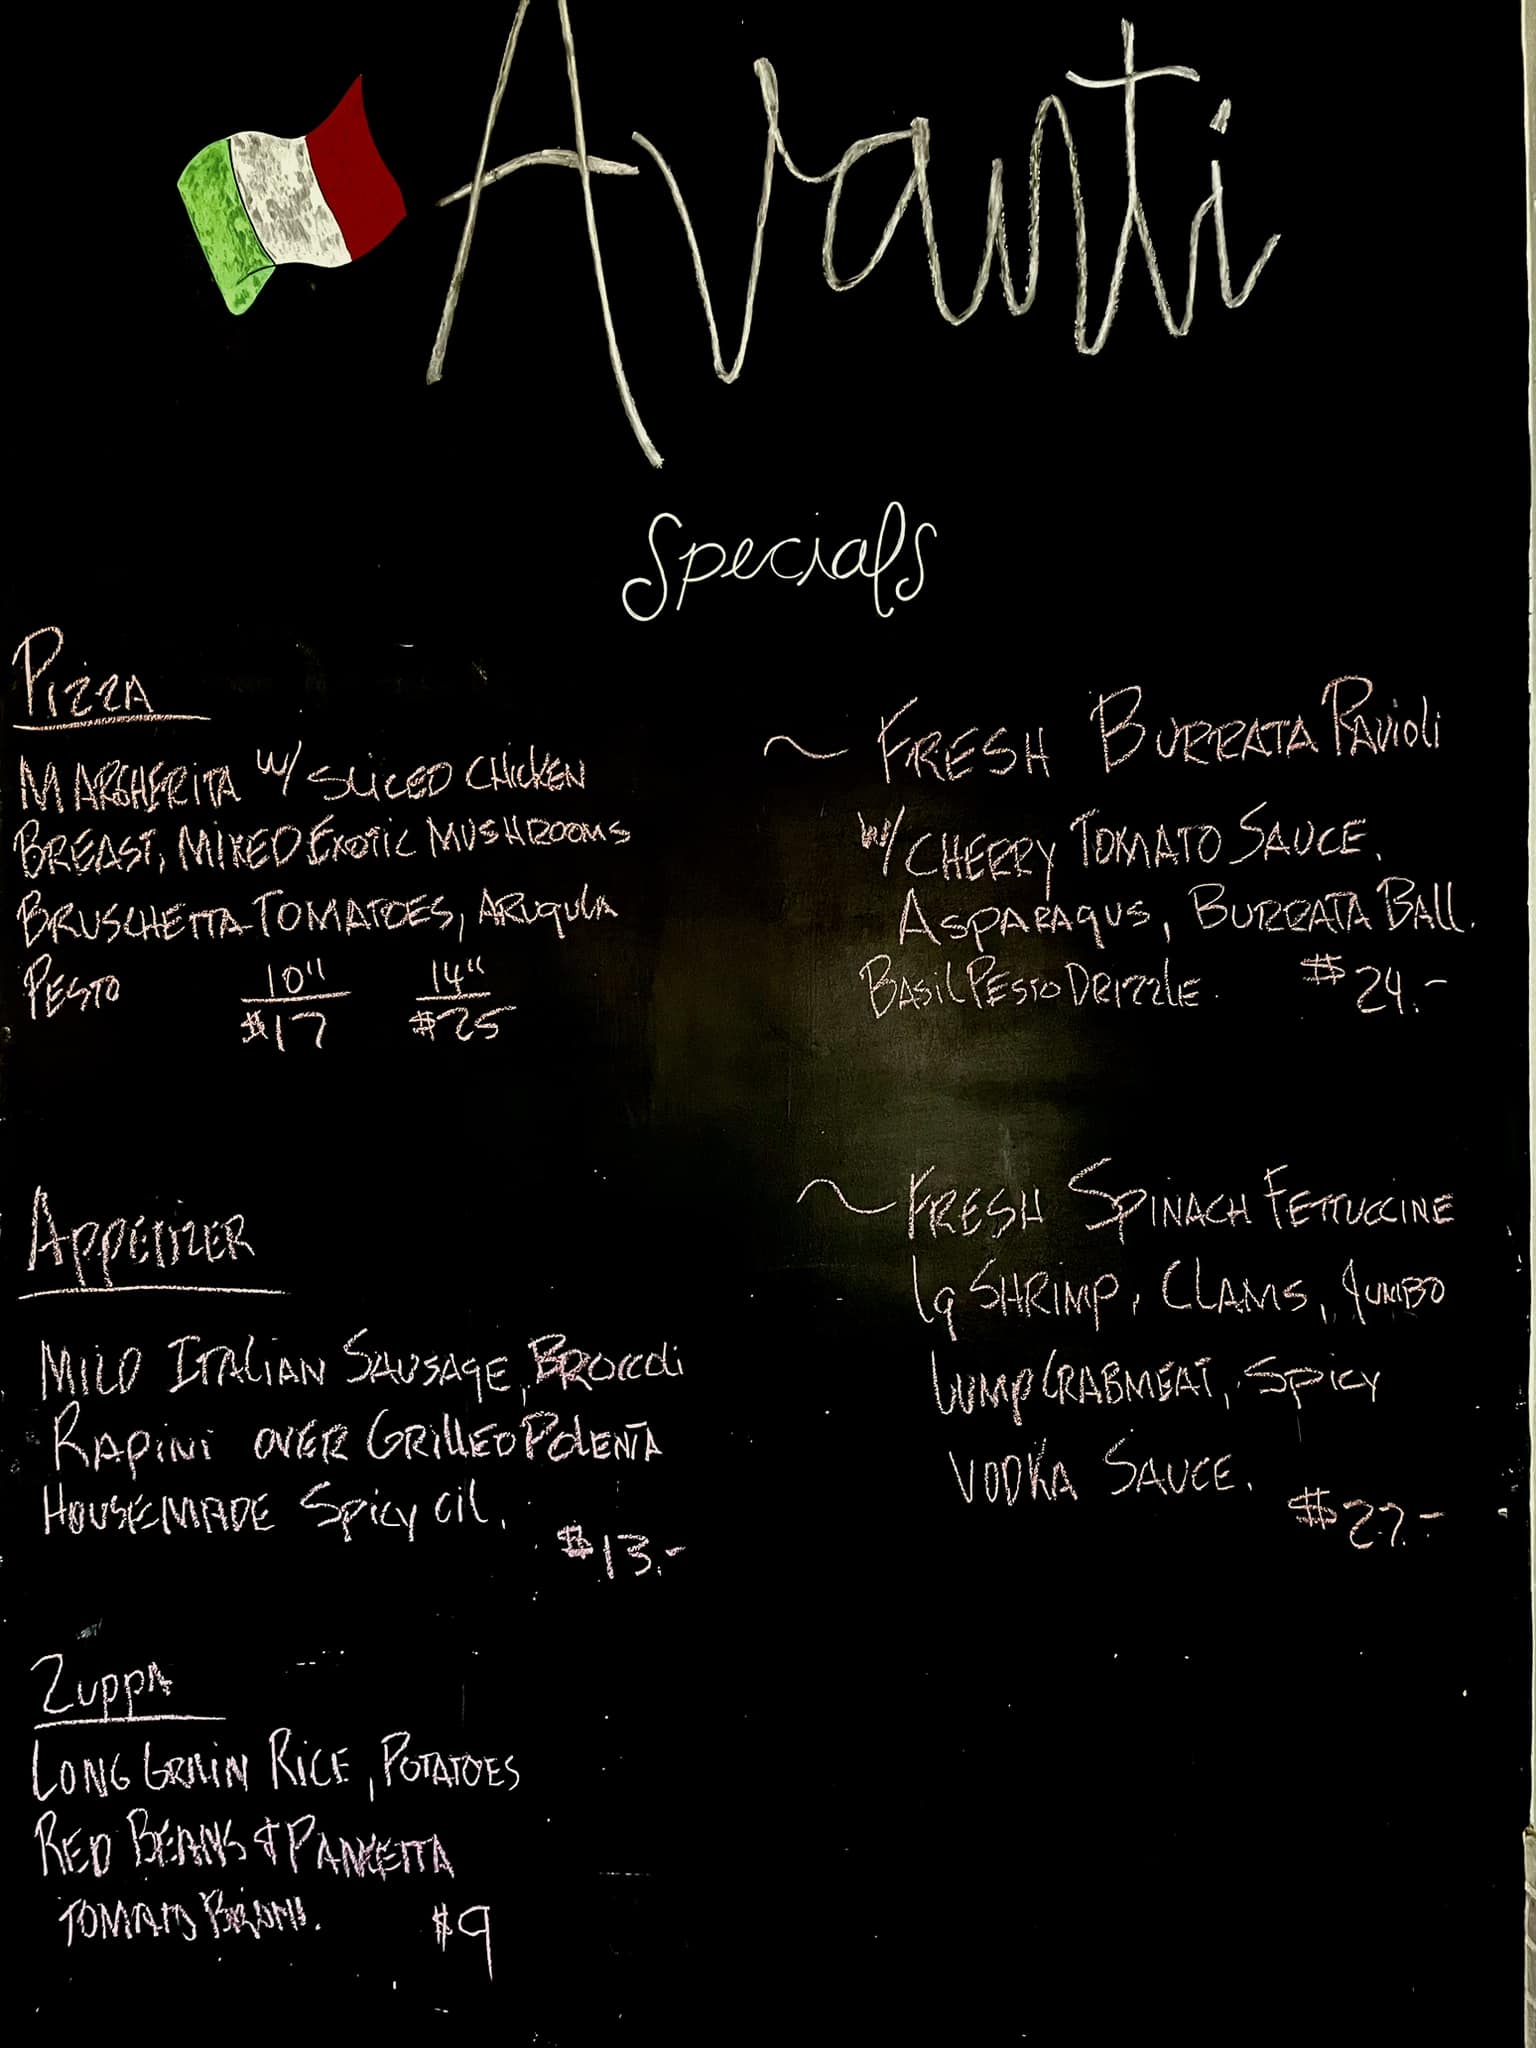 Avanti
Specials
Pizza
MARGHERITA w/ SLICED CHICKEN
BREAST, MIXED EXOTIC MUSHROOMS
BRUSCHETTA TOMATOES, ARUGULA
PESTO 10" 14"
$17 $25
APPETIZER
MILD ITALIAN SAUSAGE, BROCCOLI
RAPINI OVER GRILLED POLENTA
HOUSEMADE SPICY OIL.
$13.-
Zuppa
LONG GRAIN RICE, POTATOES
RED BEANS & PANCETTA
TOMATO BROTH. $9
~ FRESH BURRATA RAVIOLI
w/ CHERRY TOMATO SAUCE.
ASPARAGUS, BURRATA BALL.
BASIL PESTO DRIZZLE. $24.-
~ FRESH SPINACH FETTUCCINE
Lg SHRIMP, CLAMS, JUMBO
LUMP CRABMEAT, SPICY
VODKA SAUCE.
$27.-